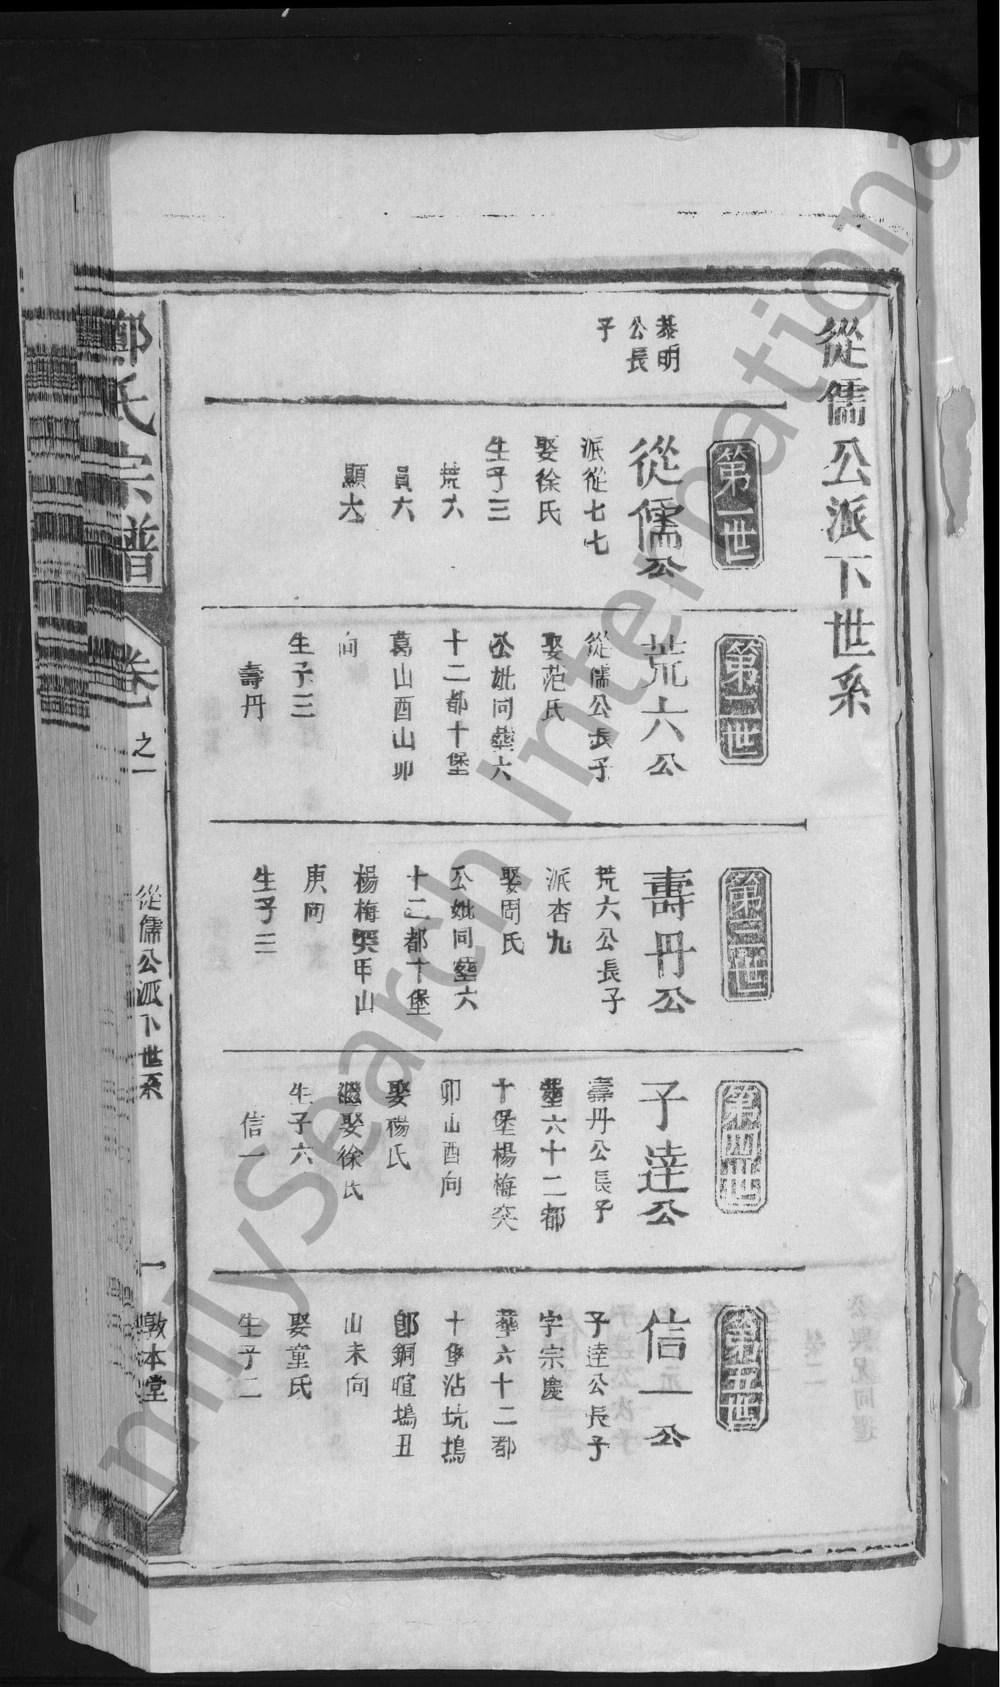 從儒公派下世系
棊明
公長
子
第一世
從儒公
派從七七
娶徐氏
生子三
荒六
員六
顯六
第二世
荒六公
從儒公長子
娶范氏
公妣同塟六
十二都十堡
葛山酉山卯
向
生子三
壽丹
第三世
壽丹公
荒六公長子
派杏九
娶周氏
公妣同塟六
十二都十堡
楊梅突甲山
庚向
生子三
第四世
子逹公
壽丹公長子
塟六十二都
十堡楊梅突
卯山酉向
娶楊氏
繼娶徐氏
生子六
信一
第五世
信一公
子逹公長子
字宗慶
塟六十二都
十堡沾坑塢
即銅暄塢丑
山未向
娶童氏
生子二
鄭氏宗譜
卷
之一
從儒公派下世系
一
敦本堂
FamilySearch International